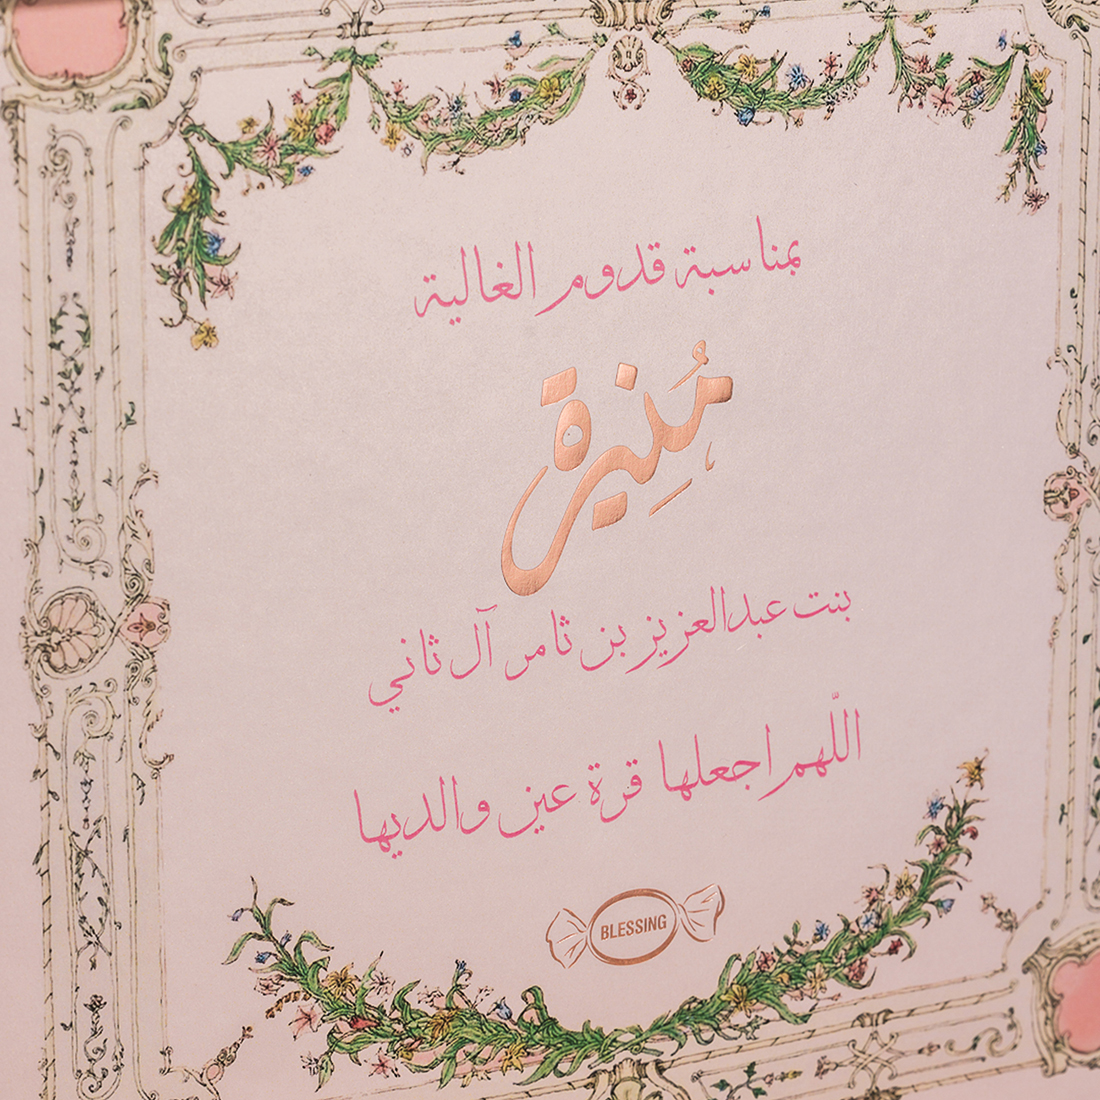 بمناسبة قدوم الغالية
مُنِيرة
بنت عبدالعزيز بن ثامر آل ثاني
اللّهم اجعلها قرة عين والديها
BLESSING